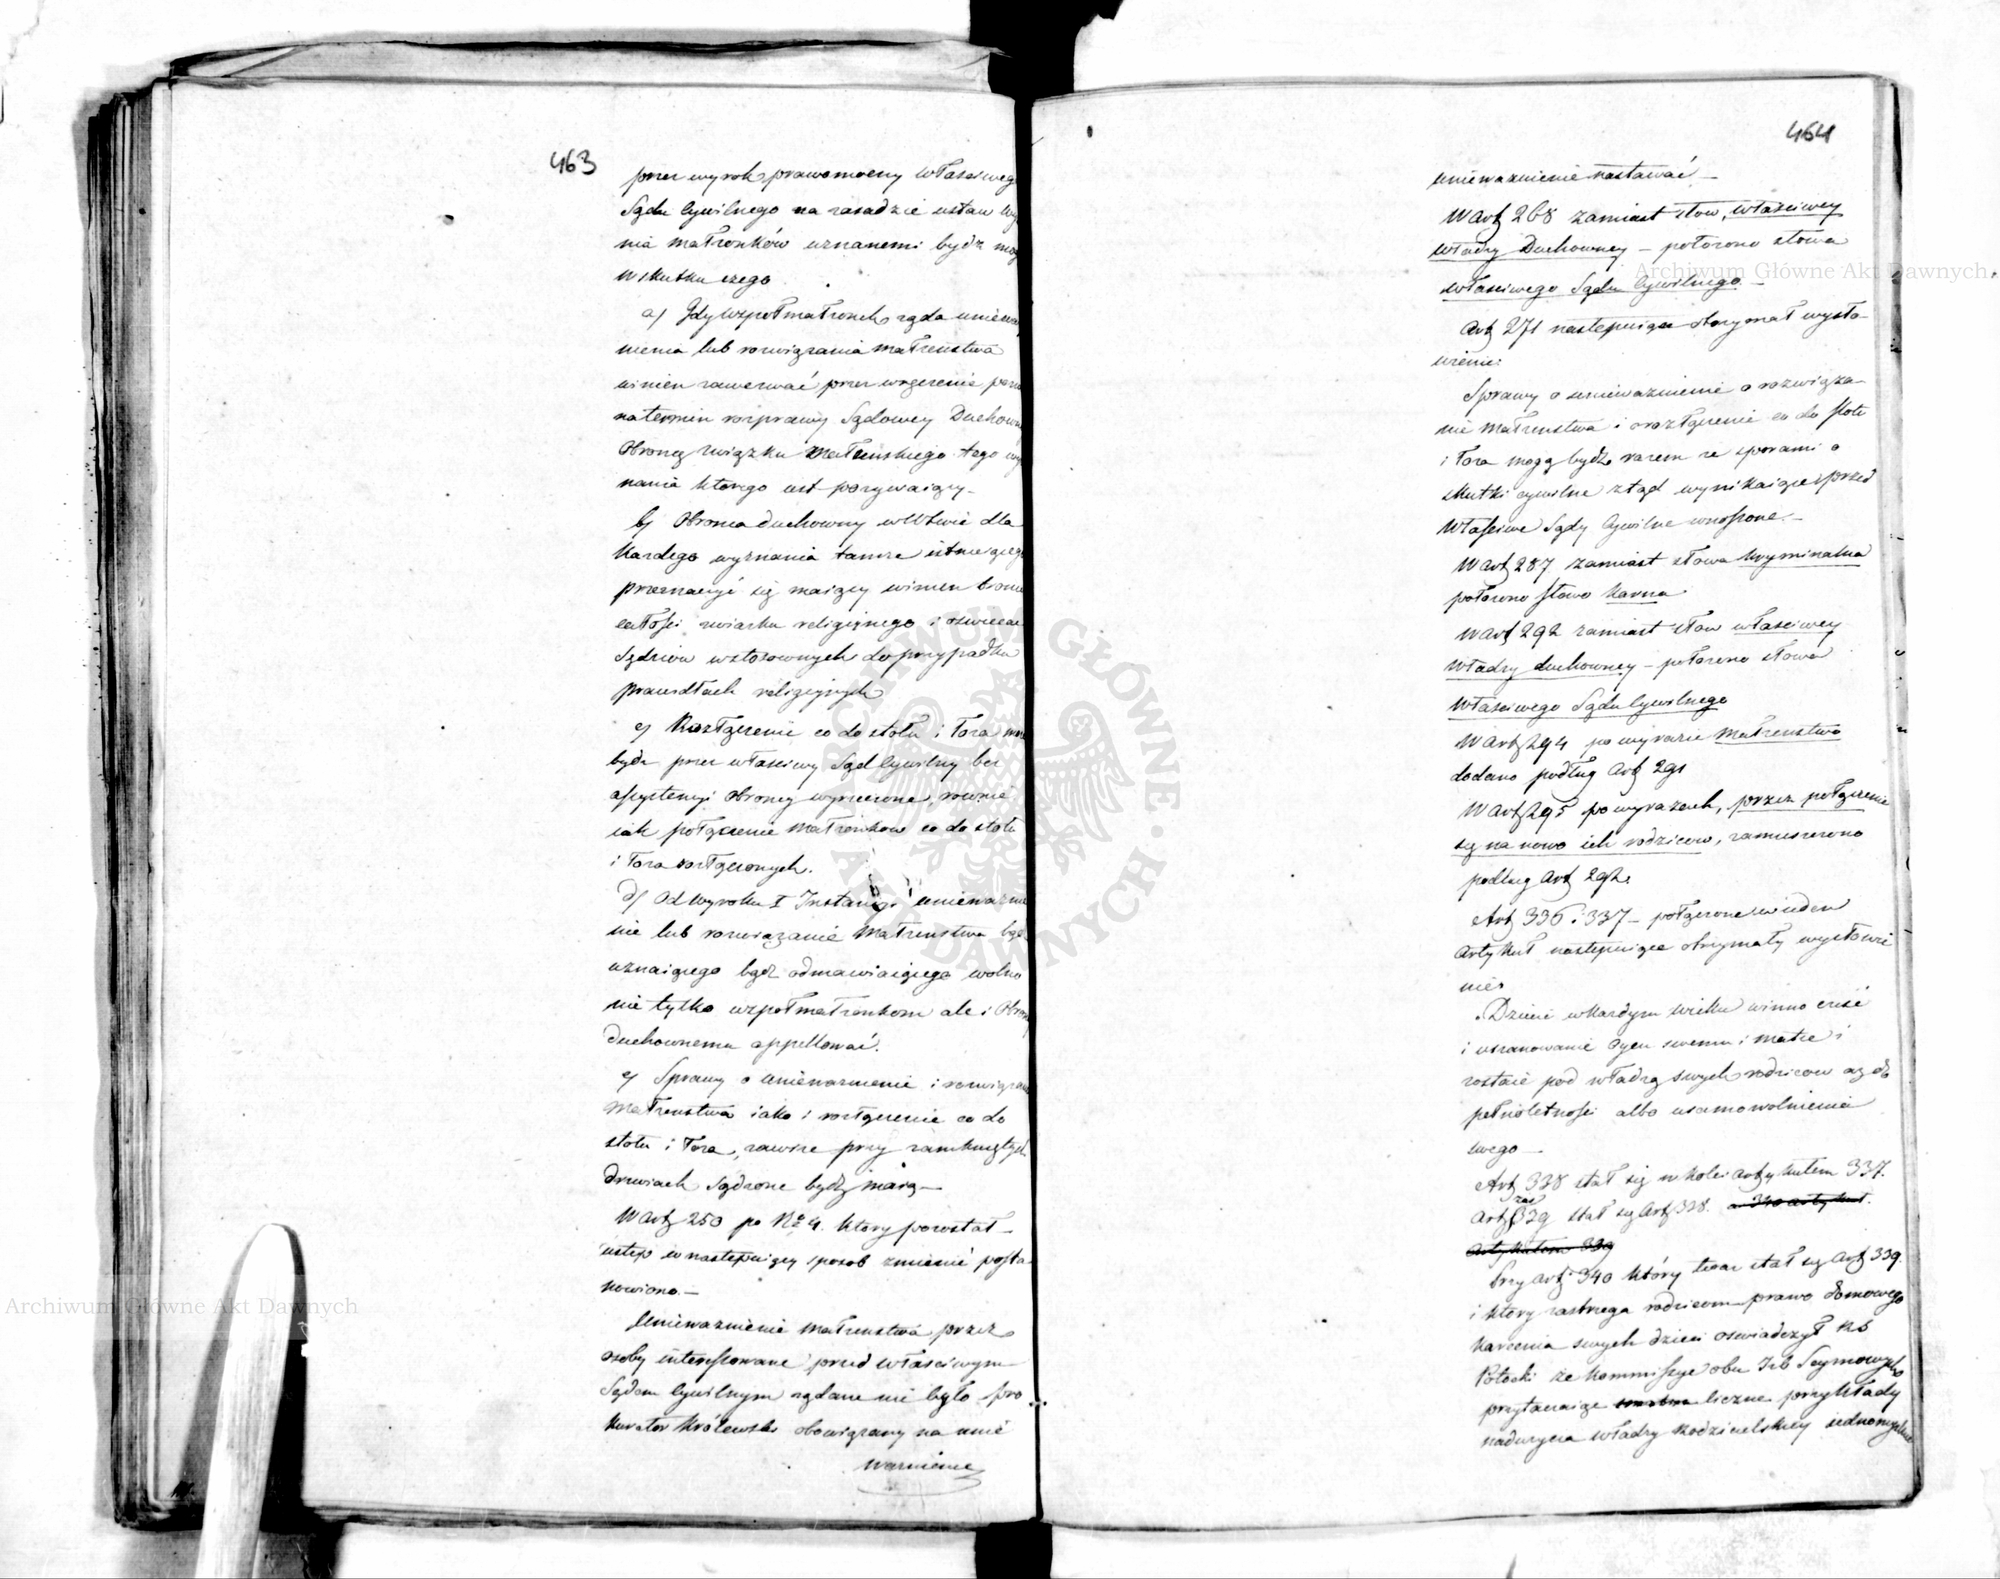 463
przez wyrok prawomocny właściwego
Sądu Cywilnego na zasadzie ustaw wy
nia małżonków uznanemi bydź mog
w skutku czego
a) Gdy wspołmałżonek żąda unieważ
nienia lub rozwiązania małżeństwa
winien zawezwać przez wręczenie pozw
na termin rozprawy Sądowey Duchown
Obroncę związku małżeńskiego tego wy
nania ktorego iest pozywaiący
b) Obronca duchowny w Wtwie dla
każdego wyznania tamże istnieiąceg
przeznaczyć się maiący winien bronić
całości związku religiynego i oświecać
Sędziów w stosownych do przypadku
prawidłach religiynych
c) Rozłączenie co do stołu i łoża może
bydz przez właściwy Sąd Cywilny bez
assystencyi Obroncy wyrzeczone, rownie
iak połączenie małżonkow co do stołu
i łoża rozłączonych.
d) Od wyroku I Instancyi unieważnie
nie lub rozwiązanie małżeństwa bądź
uznaiącego bądź odmawiaiącego wolno
nie tylko wspołmałżonkom ale i Obroncy
duchownemu appellować.
e) Sprawy o unieważnienie i rozwiązanie
małżeństwa iako i rozłączenie co do
stołu i łoża, zawsze przy zamkniętych
drzwiach sądzone bydź maią
W Art 250 po No 4. ktory pozostał
ustęp w następuiący sposob zmienić posta
nowiono.
Unieważnienie małżeństwa przez
osoby interessowane przed właściwym
Sądem Cywilnym żądane nie było pro
kurator Królewski obowiązany na unie
ważnienie
464
unieważnienie nastawać
W Art 268 zamiast słow, właściwey
władzy Duchowney – położono słowa
właściwego Sądu Cywilnego. –
Art 271 następuiące otrzymał wysło-
wienie:
Sprawy o unieważnienie o rozwiąza-
nie małżeństwa i o rozłączenie co do stołu
i łoża mogą bydź razem ze sporami o
skutki cywilne ztąd wynikaiące przed
Właściwe Sądy Cywilne wnoszone.
W Art 287 zamiast słowa kryminalna
położono słowo karna
W Art 292 zamiast słow właściwey
władzy duchowney – położono słowa
Właściwego Sądu Cywilnego
W Art 294 po wyrazie małżeństwo
dodano podług Art 291
W Art 295 po wyrazach, przez połączenie
się na nowo ich rodzicow, zamieszczono
podług Art 292.
Art 336 i 337 – połączone w ieden
Artykuł następuiące otrzymały wysłowie
nie:
Dziecie w każdym wieku winno cześć
i uszanowanie Oycu swemu i matce i
zostaie pod władzą swych rodzicow aż do
pełnoletności albo usamowolnienia
swego
Art 338 stał się w kolei artykułem 337.
Art zaś 339 stał się Art 338. a 340 artykuł.
Artykułem 339
Przy Art 340 który teraz stał się Art 339.
i ktory zastrzega rodzicom prawo domowego
karcenia swych dzieci oświadczył KS
Potocki że Kommissye obu Izb Seymowych
przytaczaiąc liczne przykłady
nadużycia władzy Rodzicielskiey iednomyślnie